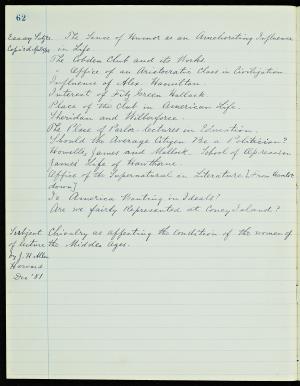 62
Essay Subjs. The Sense of Humor as an Ameliorating Influence
in Life.
The Cobden Club and its Works.
" Office of an Aristocratic Class in Civilization
Influence of Alex. Hamilton
Interest of Fitz Green Halleck
Place of the Club in American Life.
Sheridan and Wilberforce.
The Place of Parlor-lectures in Education.
Should the Average Citizen Be a Politician?
Howells, James and Mallock. School of
James' Life of Hawthorne.
Office of the Supernatural in Literature [From Hamlet
down]
Is America Wanting in Ideals?
Are we fairly Represented at Coney Island?
Subject Chivalry as affecting the condition of the women of
of lecture the Middle Ages.
by J. H. Allen
Harvard
Dec '81